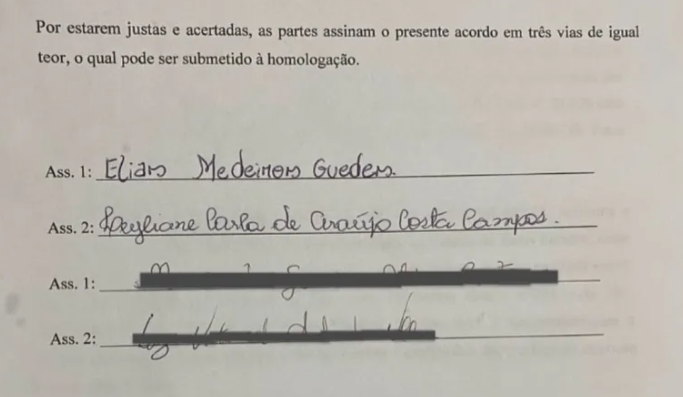 Por estarem justas e acertadas, as partes assinam o presente acordo em três vias de igual
teor, o qual pode ser submetido à homologação.
Ass. 1: Elias Medeiros Guedes.
Ass. 2: Carla de Araújo Costa Campos.
Ass. 1:
Ass. 2: